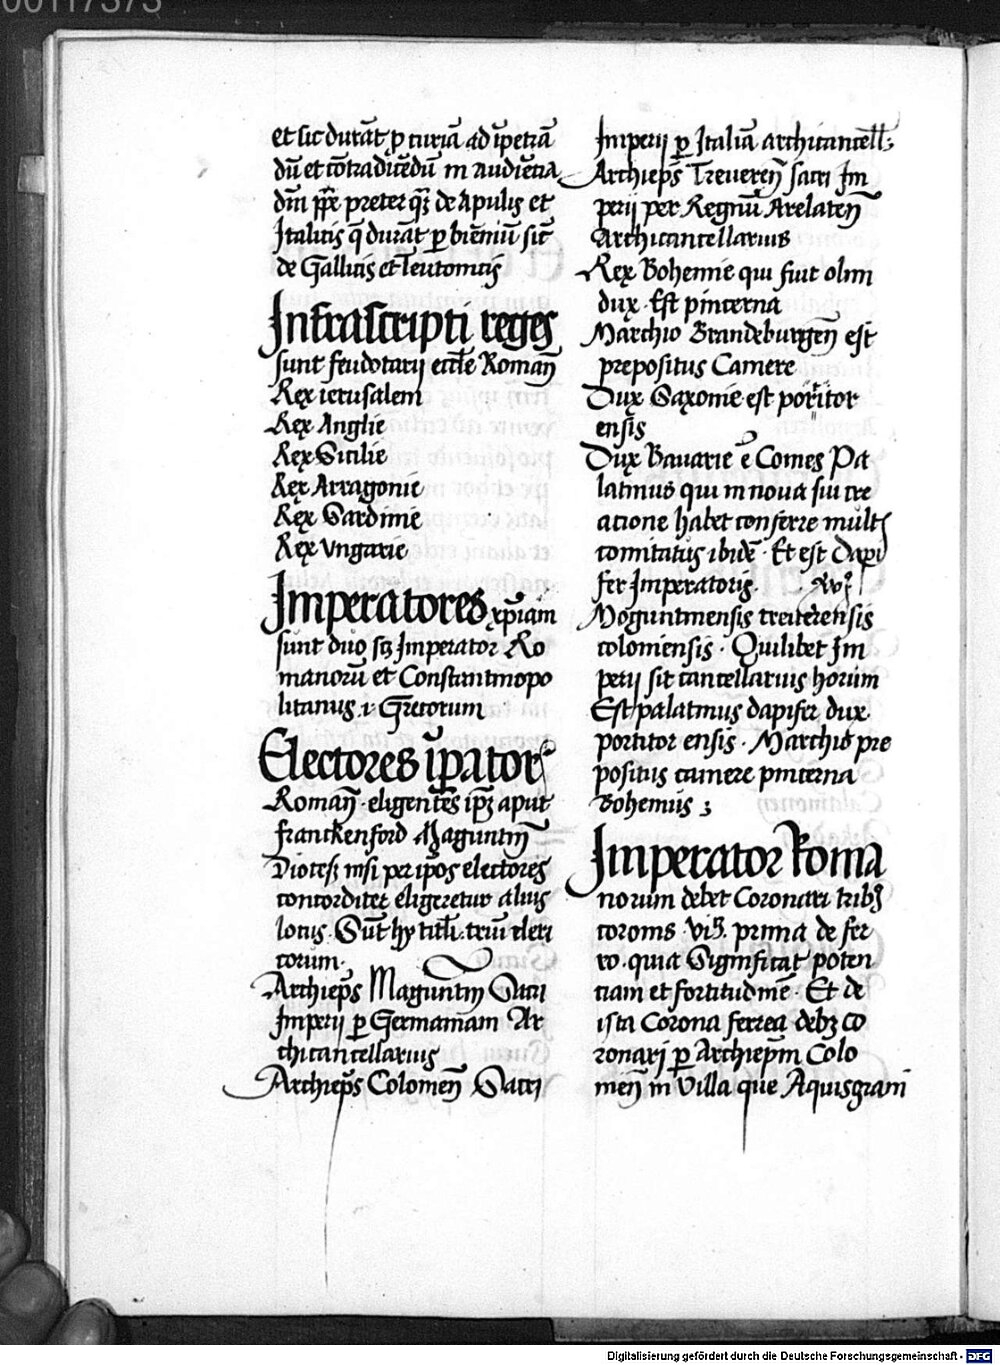 00117373
et sic durāt p curiā ad īpetrā
dū et cōtradicēdū in audiētia
dm̄ ppe preter qꝫ de Apulis et
Italicis q̄ durāt ꝑ biēniū sic̄
de Gallicis et Teutonicis
Infrascripti reges
sunt feudotarij eccl̄e Roman̄
Rex ierusalem
Rex Anglie
Rex Sicilie
Rex Arragonie
Rex Sardinie
Rex Vngarie
Imperatores xp̄iani
sunt duo scꝫ Imperator Ro
manorū et Constantinopo
litanus .i. Grecorum
Electores īpator
Roman̄ · eligentes ipꝫ aput
franckenford Maguntin̄
Dioces̄ nisi per ip̄os electores
concorditer eligeretur alius
locus · Sūt hy tituli triū cleri
corum ·
Archiep̄s Maguntin̄ Sacri
Imperij ꝑ Germaniam Ar
chicancellarius
Archiep̄s Colonien̄ Sacri
Imperij ꝑ Italiā archicancell̄
Archiep̄s Treueren̄ sacri Im
perij per Regnū Arelaten̄
Archicancellarius
Rex Bohemie qui fuit olim
dux · Est pincerna
Marchio Brandeburgen̄ est
prepositus Camere
Dux Saxonie est portitor
ensis
Dux Bauarie ē Comes Pa
latinus qui in noua sui cre
acione habet conferre mult
comitatus ibidē · Et est Dapi
fer Imperatoris
Moguntinensis treiterensis
coloniensis · Quilibet Im
perij fit cancellarius horum
Est palatinus dapifer dux
portitor ensis · Marchio pre
positus camere pincerna
Bohemus
Imperator Roma
norum debet Coronari tribꝫ
coronis · viꝫ. prima de fer
ro · quia Significat poten
ciam et fortitudinē · Et de
ista Corona ferrea debꝫ co
ronari ꝑ Archiep̄m Colo
nien̄ in Villa que Aquisgrani
Digitalisierung gefördert durch die Deutsche Forschungsgemeinschaft - DFG